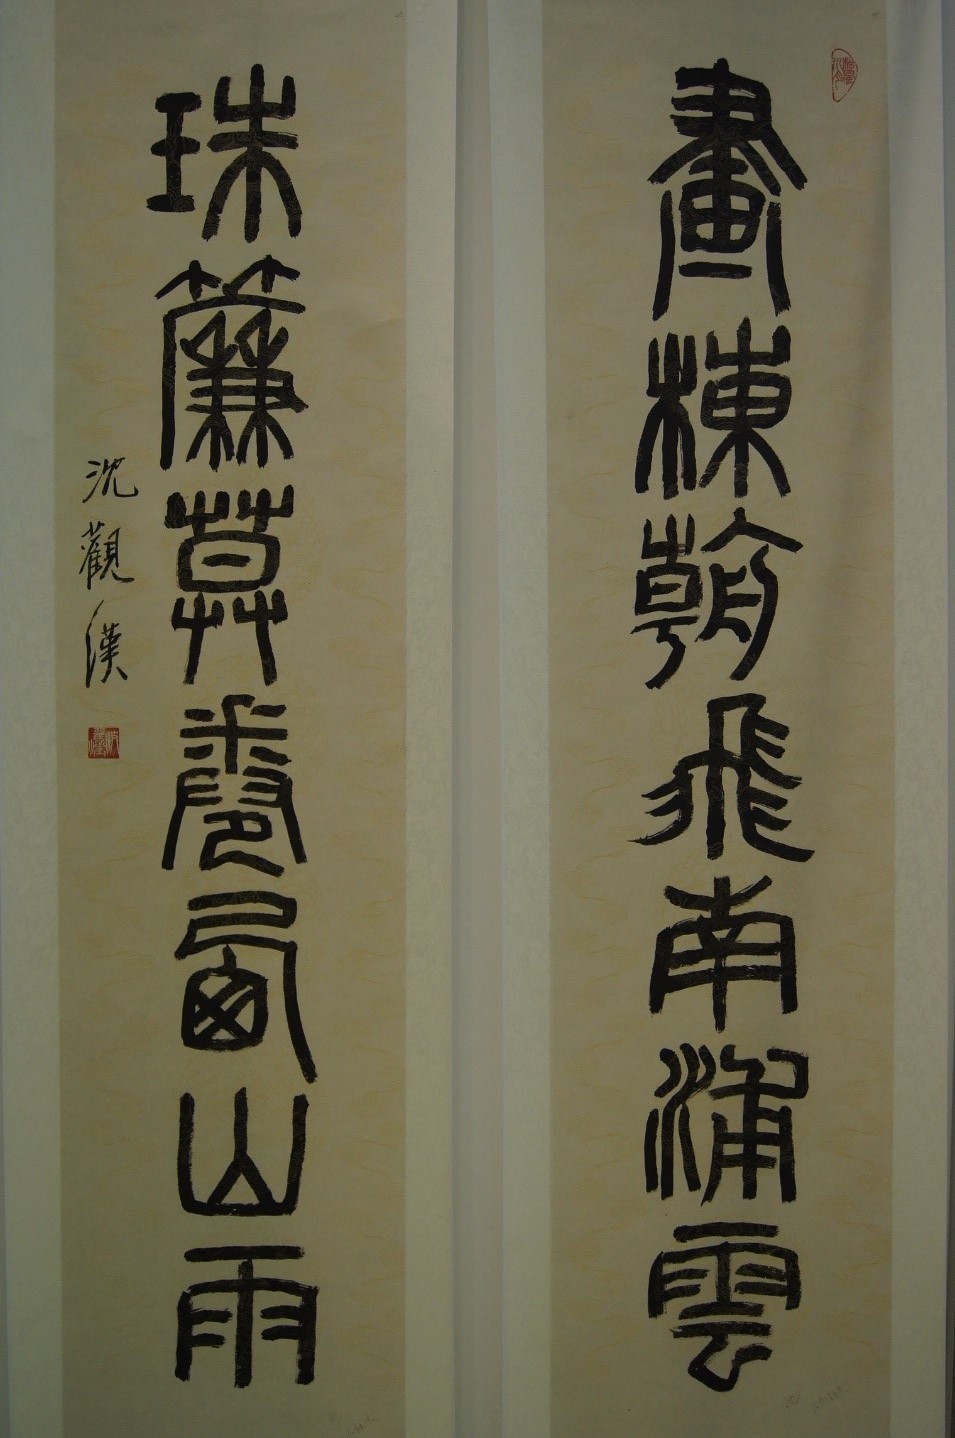 畫棟朝飛南浦雲
珠簾莫卷西山雨
沈觀漢